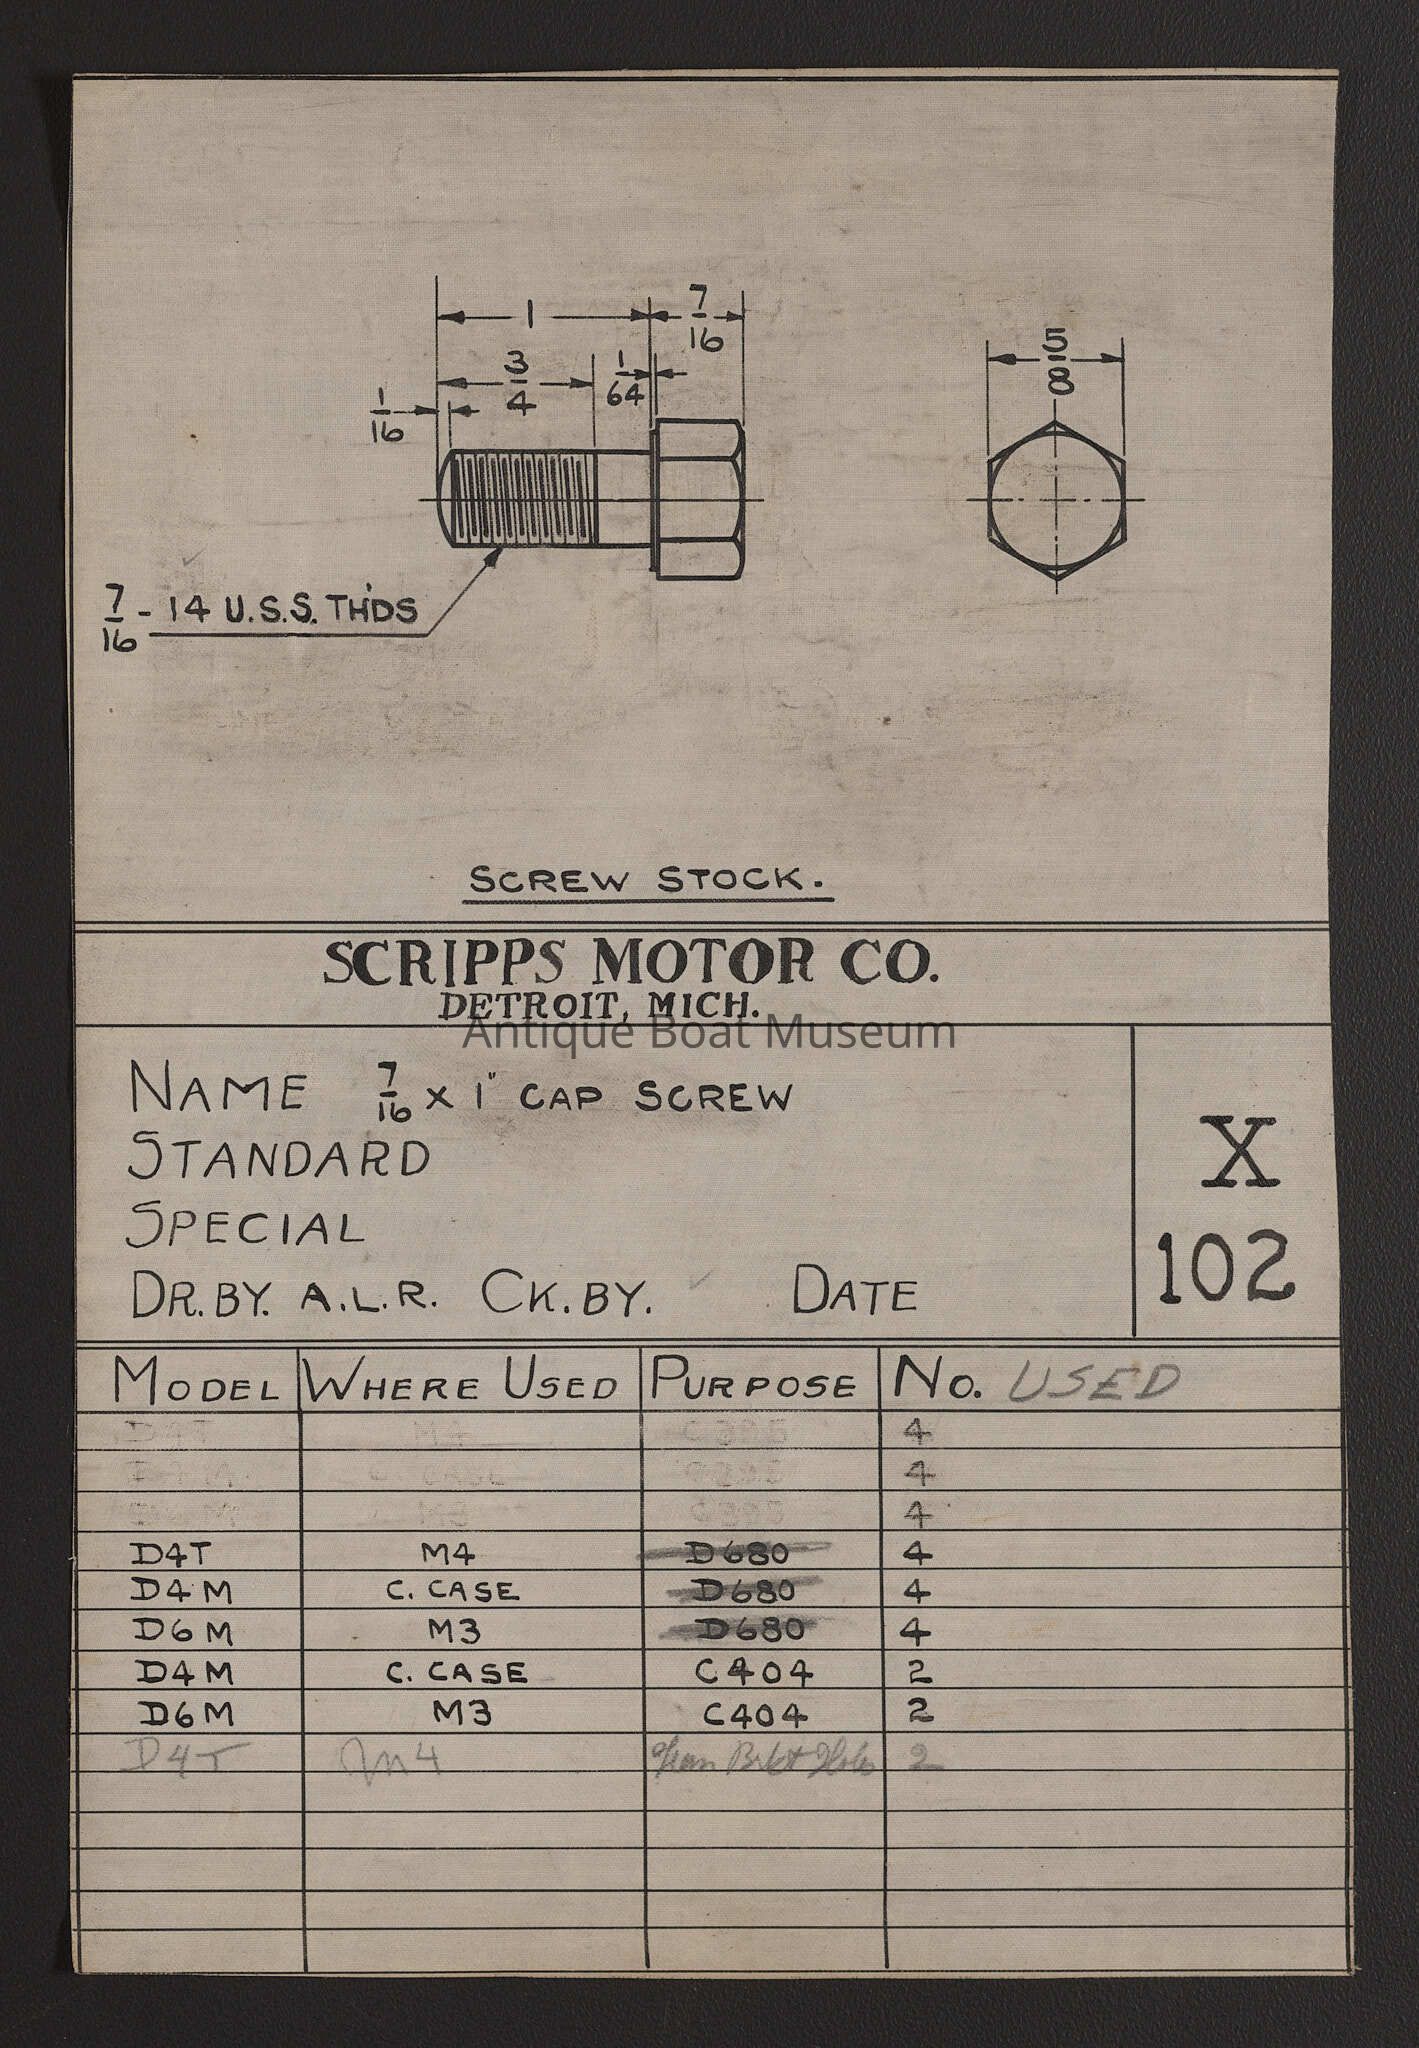 1 7/16
3/4 1/64 5/8
1/16
7/16 - 14 U.S.S. TH'DS
SCREW STOCK.
SCRIPPS MOTOR CO.
DETROIT, MICH.
Antique Boat Museum
NAME 7/16 X 1" CAP SCREW
STANDARD
SPECIAL
DR. BY. A.L.R. CK. BY. DATE
X
102
MODEL WHERE USED PURPOSE NO. USED
4
4
4
D4T M4 D680 4
D4M C. CASE D680 4
D6M M3 D680 4
D4M C. CASE C404 2
D6M M3 C404 2
D4T M4 2